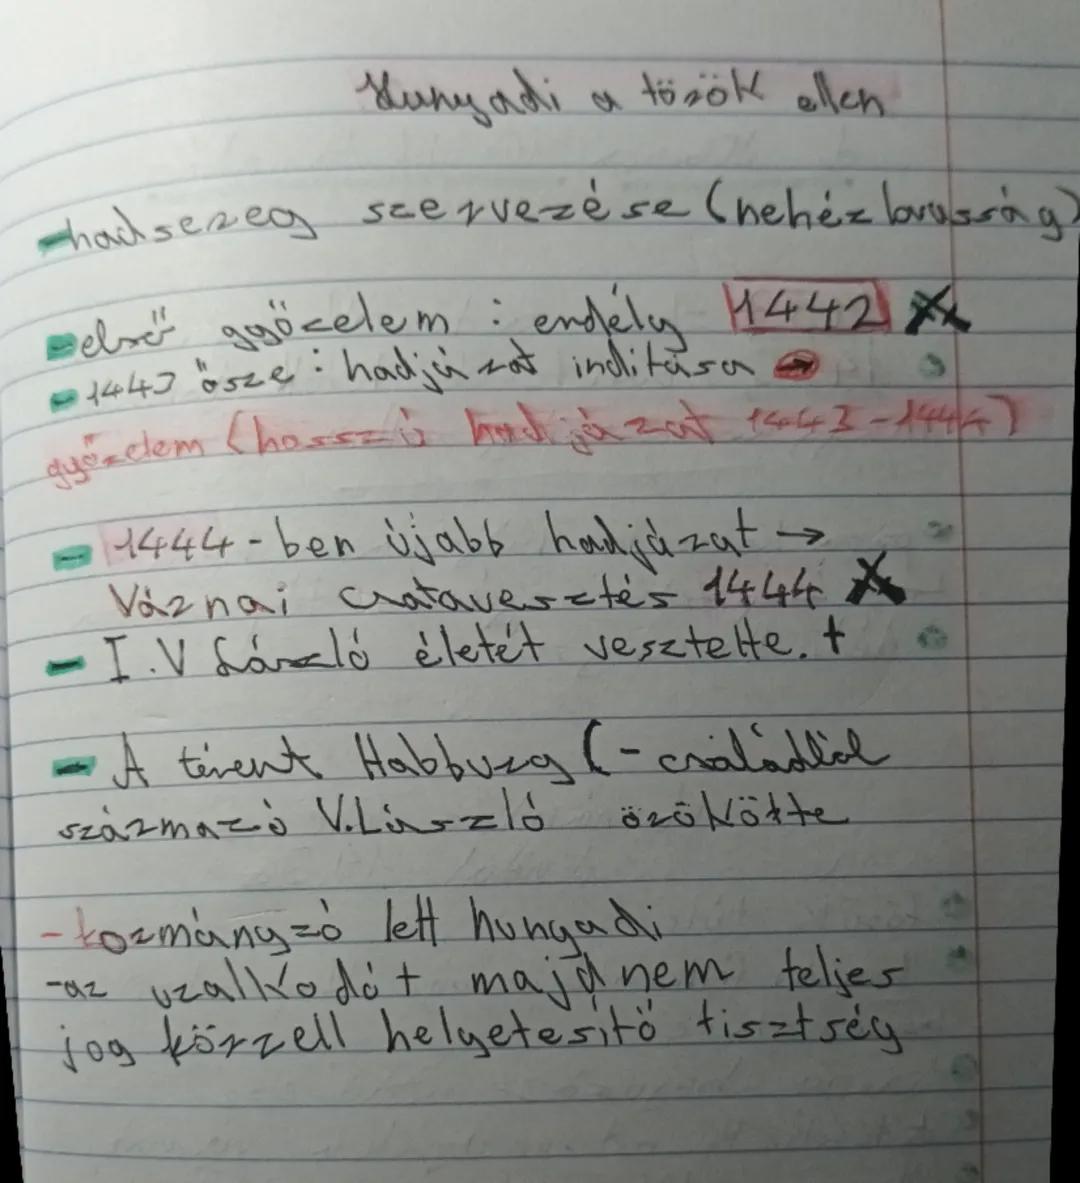 Hunyadi a török ellen
-hadsereg szervezése (nehéz lovasság)
-első győzelem : erdély 1442 X
- 1443 ősze : hadjárat inditása →
győzelem (hosszú hadjárat 1443-1444)
- 1444-ben újabb hadjárat →
Várnai csatavesztés 1444 X
- I.V László életét vesztette. †
- A térent Habburg (-családból
származó V.László örökötte
- kormányzó lett hunyadi
-az uralkodót majdnem teljes
jog körrell helyetesítő tisztség